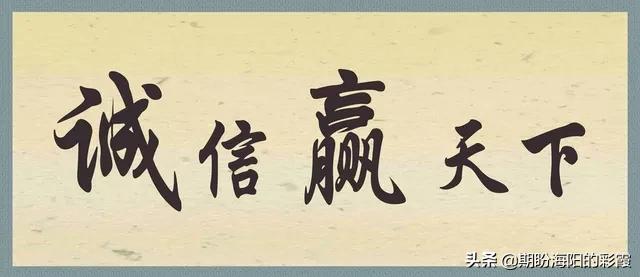 诚信赢天下
头条 @期盼海阳的彩霞